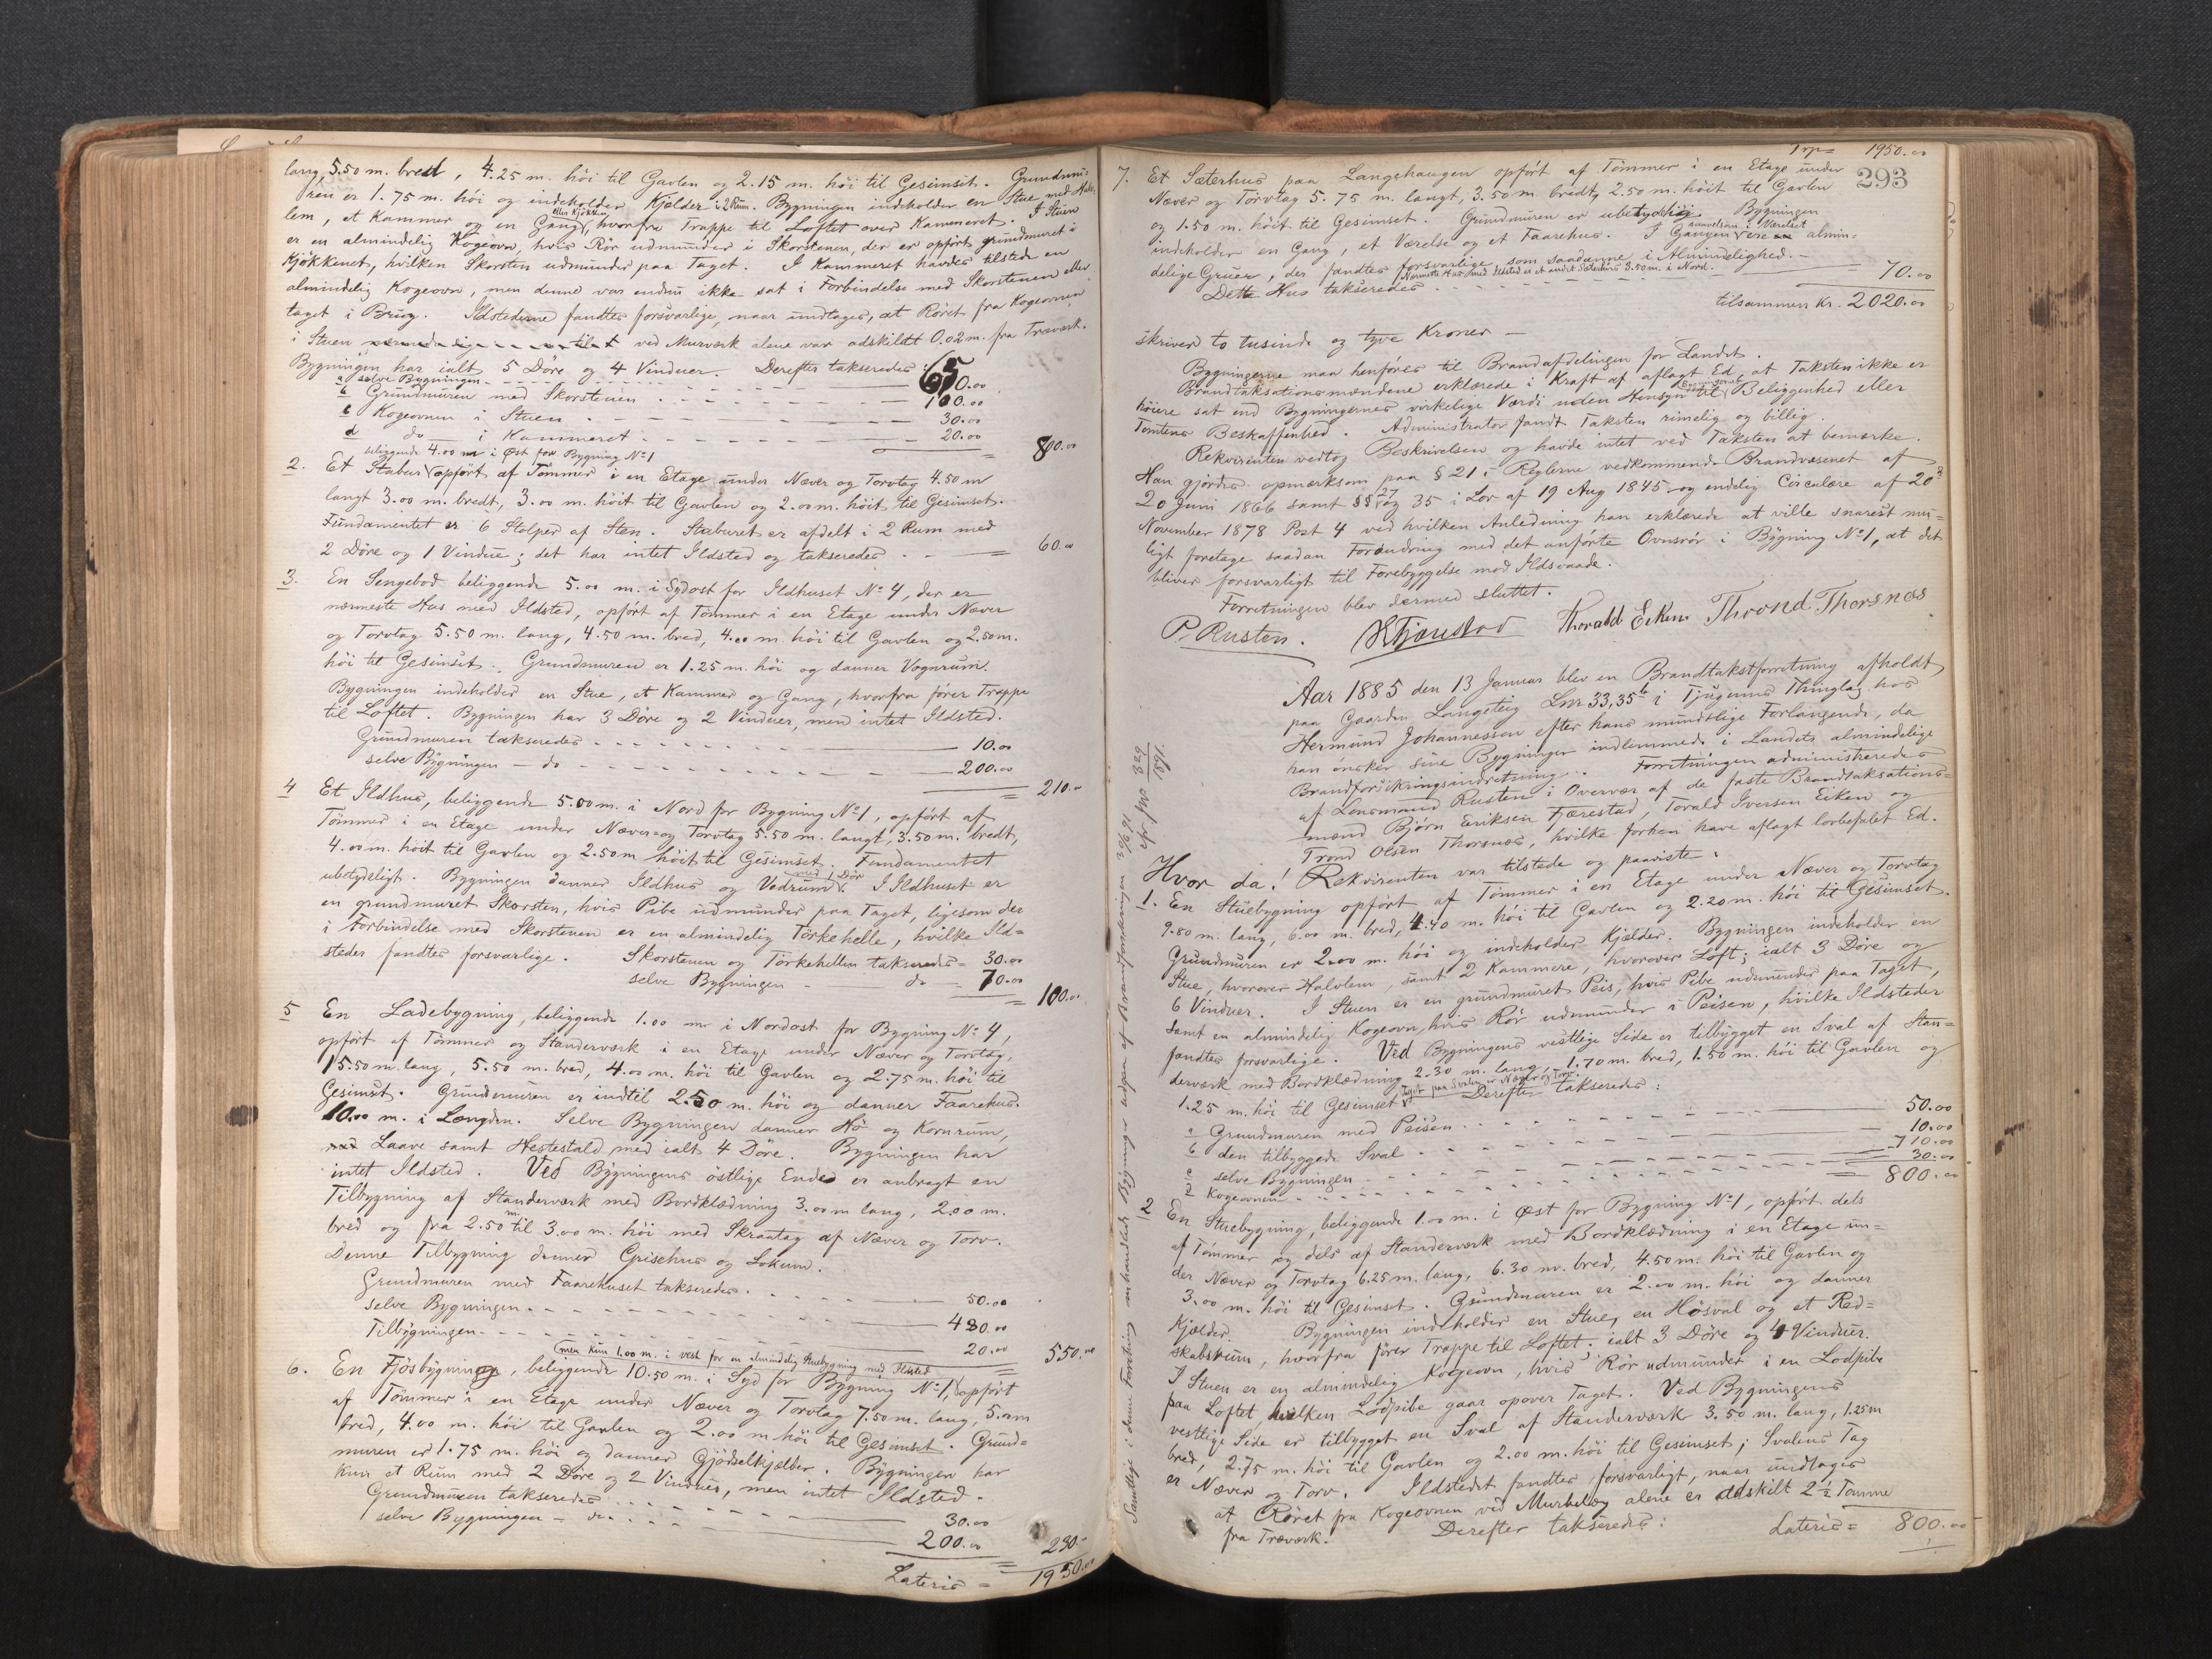 lang, 5.50 m. bred, 4.25 m. höi til Gavlen og 2.15 m. höi til Gesimset. Grundmu=
ren er 1.75 m. höi og indeholder Kjelder i 2 Rum. Bygningen indeholder en Stue med Hal=
lem, et Kammer og en Gang eller Kjökken, hvorfra Trappe til Loftet over Kammeret. I Stuen
er en almindelig Kogeovn, hvis Rör udmunder i Skorstenen, der er opfört grundmuret i
Kjökkenet, hvilken Skorsten udmunder paa Taget. I Kammeret havdes tilstede en
almindelig Kogeovn, men denne var endnu ikke sat i Forbindelse med Skorstenen eller
taget i Brug. Ildstederne fandtes forsvarlige, naar undtages, at Röret fra Kogeovnen
i Stuen ved Murværk alene var adskildt 0.02 m. fra Træværk.
Bygningen har ialt 5 Döre og 4 Vinduer. Derefter takseredes:
a selve Bygningen 650.00
b Grundmuren med Skorstenen 100.00
c Kogeovnen i Stuen 30.00
d do i Kammeret 20.00
= 800.00
beliggende 4.00 m i Öst for Bygning No 1
2. Et Stabur opfört af Tömmer i en Etage under Næver og Torvtag 4.50 m
langt 3.00 m. bredt, 3.00 m. höit til Gavlen og 2.00 m. höit til Gesimset.
Fundamentet er 6 Stolper af Sten. Staburet er afdelt i 2 Rum med
2 Döre og 1 Vindue; det har intet Ildsted og takseredes = 60.00
3. En Sengebod beliggende 5.00 m. i Sydost for Ildhuset No 4, der er
nærmeste Hus med Ildsted, opfört af Tömmer i en Etage under Næver
og Torvtag 5.50 m. lang, 4.50 m. bred, 4.00 m. höi til Gavlen og 2.50 m.
höi til Gesimset. Grundmuren er 1.25 m. höi og danner Vognrum.
Bygningen indeholder en Stue, et Kammer og Gang, hvorfra förer Trappe
til Loftet. Bygningen har 3 Döre og 2 Vinduer, men intet Ildsted.
Grundmuren takseredes 10.00
selve Bygningen - do 200.00
= 210.00
4 Et Ildhus, beliggende 5.00 m. i Nord for Bygning No 1, opfört af
Tömmer i en Etage under Næver og Torvtag 5.50 m. langt, 3.50 m. bredt,
4.00 m. höit til Gavlen og 2.50 m höit til Gesimset. Fundamentet
ubetydeligt. Bygningen danner Ildhus og Vedrum med 1 Dör. I Ildhuset er
en grundmuret Skorsten, hvis Pibe udmunder paa Taget, ligesom der
i Forbindelse med Skorstenen er en almindelig Törkehelle, hvilke Ild=
steder fandtes forsvarlige. Skorstenen og Törkehellen takseredes = 30.00
selve Bygningen do 70.00
= 100.00
5 En Ladebygning, beliggende 1.00 m i Nordost for Bygning No 4,
opfört af Tömmer og Standerværk i en Etage under Næver og Torvtag,
15.50 m. lang, 5.50 m. bred, 4.00 m. höi til Gavlen og 2.75 m. höi til
Gesimset. Grundmuren er indtil 2.50 m. höi og danner Faarehus
10.00 m. i Længden. Selve Bygningen danner Hö og Kornrum,
Laave samt Hestestald med ialt 4 Döre. Bygningen har
intet Ildsted. Ved Bygningens östlige Ende er anbragt en
Tilbygning af Standerværk med Bordklædning 3.00 m lang, 2.00 m.
bred og fra 2.50 m til 3.00 m. höi med Skraatag af Næver og Torv.
Denne Tilbygning danner Grisehus og Lokum.
Grundmuren med Faarehuset takseredes 50.00
selve Bygningen 480.00
Tilbygningen 20.00
= 550.00
men kun 1.00 m. i vest for en almindelig Stuebygning med Ildsted
6. En Fjösbygning, beliggende 10.50 m. i Syd for Bygning No 1, opfört
af Tömmer i en Etage under Næver og Torvtag 7.50 m. lang, 5.00 m
bred, 4.00 m. höi til Gavlen og 2.00 m höi til Gesimset. Grund=
muren er 1.75 m. höi og danner Gjödselkjælder. Bygningen har
kun et Rum med 2 Döre og 2 Vinduer, men intet Ildsted.
Grundmuren takseredes 30.00
selve Bygningen - do 200.00
= 230.-
Lateris = 1950.00
293
Trp= 1950.00
7. Et Sæterhus paa Langehaugen opfört af Tömmer i en Etage under
Næver og Torvtag 5.75 m. langt, 3.50 m. bredt, 2.50 m. höit til Gavlen
og 1.50 m. höit til Gesimset. Grundmuren er ubetydelig. Bygningen
indeholder en Gang, et Værelse og et Faarehus. I Gangen saavelsom i Værelset ere almin=
delige Gruer, der fandtes forsvarlige, som saadanne i Almindelighed.
Nærmeste Hus med Ildsted er et andet Sæterhus 3.50 m. i Nord.
Dette Hus takseredes = 70.00
tilsammen Kr. 2020.00
skriver to tusinde og tyve Kroner —
Bygningerne maa henföres til Brandafdelingen for Landet.
Brandtaksationsmændene erklærede i Kraft af aflagt Ed, at Taksten ikke er
höiere sat end Bygningernes virkelige Værdi uden Hensyn til Bygningernes Beliggenhed eller
Tomtens Beskaffenhed. Administrator fandt Taksten rimelig og billig.
Rekvirenten vedtog Beskrivelsen og havde intet ved Taksten at bemærke.
Han gjordes opmærksom paa § 21 i Reglerne vedkommende Brandvæsenet af
20 Juni 1866 samt §§ 27 og 35 i Lov af 19 Aug 1845 og endelig Circulære af 20
November 1878 Post 4 ved hvilken Anledning han erklærede at ville snarest mu=
ligt foretage saadan Forandring med det anförte Ovnsrör i Bygning No 1, at det
bliver forsvarligt til Forebyggelse mod Ildsvaade.
Forretningen blev dermed sluttet.
P. Rusten. Thorald Eken Thrond Thorsnes
Aar 1885 den 13 Januar blev en Brandtakstforretning afholdt
paa Gaarden Langeteig Lnr 33, 35 b i Tjugums Thinglag hos
Hermund Johannessen efter hans mundtlige Forlangende, da
han önsker sine Bygninger indlemmede i Landets almindelige
Brandforsikringsindretning. Forretningen administreredes
af Lensmand Rusten i Overvær af de faste Brandtaksations=
mænd Björn Eriksen Fjærestad, Torald Iversen Eiken og
Trond Olsen Thorsnes, hvilke forhen have aflagt lovbefalet Ed.
Hvor da! Rekvirenten var tilstede og paaviste:
1. En Stuebygning opfört af Tömmer i en Etage under Næver og Torvtag
9.80 m. lang, 6.00 m. bred, 4.40 m. höi til Gavlen og 2.20 m. höi til Gesimset.
Grundmuren er 2.00 m. höi og indeholder Kjælder. Bygningen indeholder en
Stue, hvorover Halvlem, samt 2 Kammere, hvorover Loft; ialt 3 Döre og
6 Vinduer. I Stuen er en grundmuret Peis, hvis Pibe udmunder paa Taget,
samt en almindelig Kogeovn, hvis Rör udmunder i Peisen, hvilke Ildsteder
fandtes forsvarlige. Ved Bygningens vestlige Side er tilbygget en Sval af Stan=
derværk med Bordklædning 2.30 m. lang, 1.70 m. bred, 1.50 m. höi til Gavlen og
1.25 m. höi til Gesimset. Taget paa Svalen er Næver og Torv. Derefter takseredes:
a Grundmuren med Peisen 50.00
b den tilbyggede Sval 10.00
c selve Bygningen 710.00
d Kogeovnen 30.00
= 800.00
2 En Stuebygning, beliggende 1.00 m. i Öst for Bygning No 1, opfört dels
af Tömmer og dels af Standerværk med Bordklædning i en Etage un=
der Næver og Torvtag 6.25 m. lang, 6.30 m. bred, 4.50 m. höi til Gavlen og
3.00 m. höi til Gesimset. Grundmuren er 2.00 m. höi og danner
Kjælder. Bygningen indeholder en Stue, en Hösval og et Red=
skabsrum, hvorfra förer Trappe til Loftet; ialt 3 Döre og 4 Vinduer.
I Stuen er en almindelig Kogeovn, hvis Rör udmunder i en Lodpibe
paa Loftet, hvilken Lodpibe gaar opover Taget. Ved Bygningens
vestlige Side er tilbygget en Sval af Standerværk 3.50 m. lang, 1.25 m
bred, 2.75 m. höi til Gavlen og 2.00 m. höi til Gesimset; Svalens Tag
er Næver og Torv. Ildstedet fandtes forsvarligt, naar undtages
at Röret fra Kogeovnen ved Murbelæg alene er adskilt 2½ Tomme
fra Træværk. Derefter takseredes: Lateris = 800.00
Samtlige i denne Forretning omhandlede Bygninger udgaa af Brandforsikringen 30/6 91
329
1891.